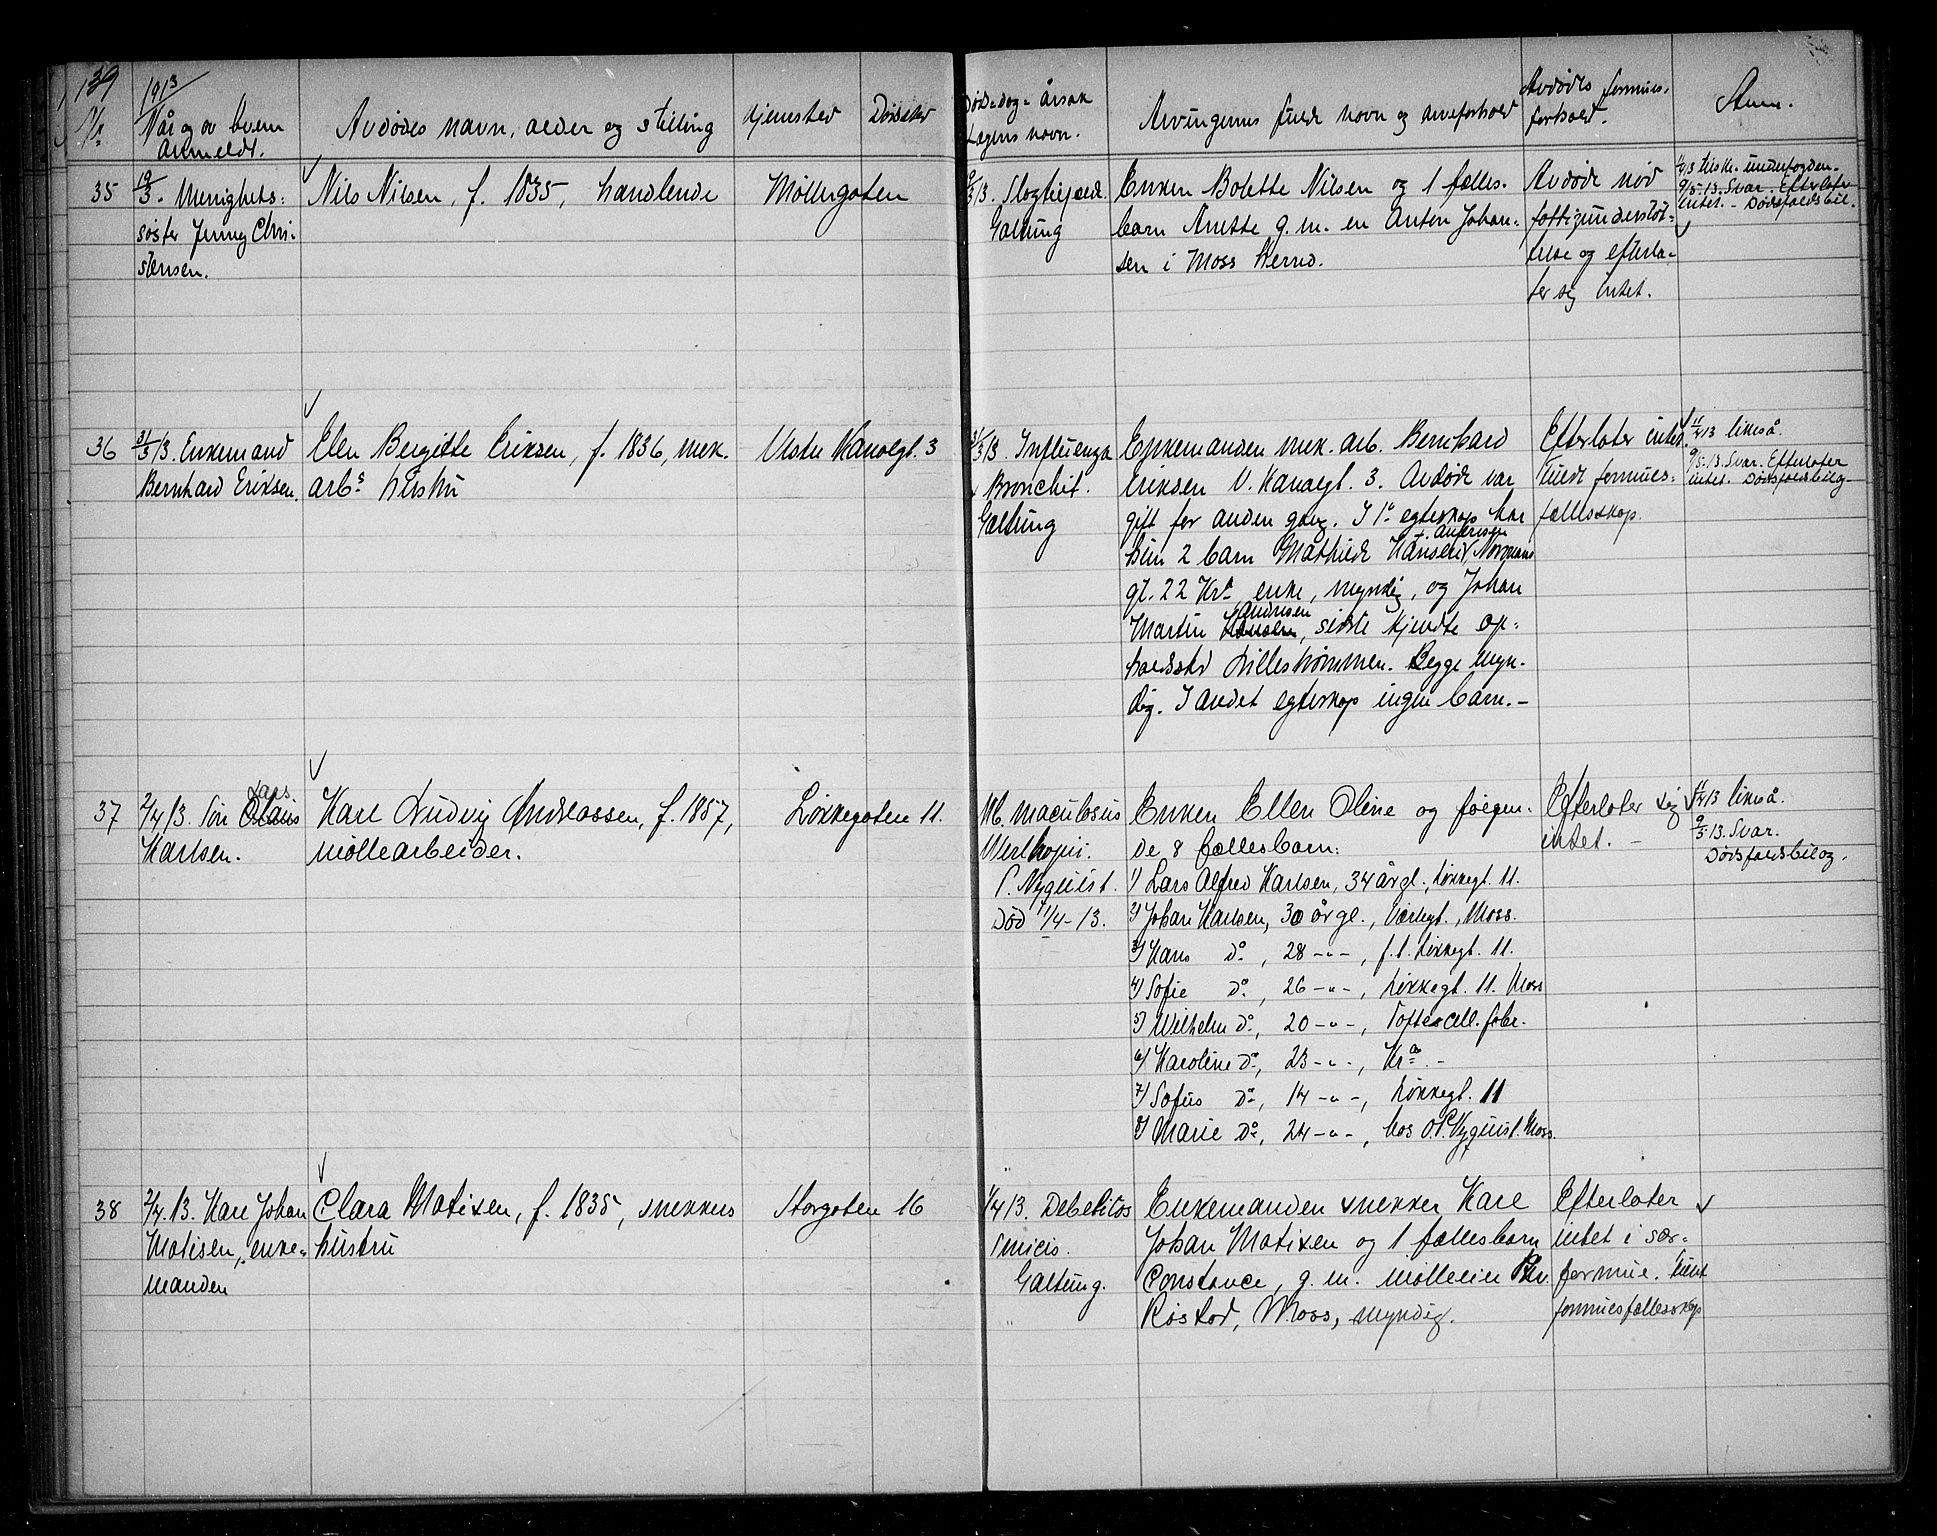 139
1913
Når og av hvem
anmeldt.
Avdødes navn, alder og stilling
Hjemsted
Dødssted
Døds-dag- årsak
Lægens navn.
Arvingernes fulde navn og arveforhold
Avdødes formues-
forhold.
Anm.
35
19/3. Menighets-
søster Jenny Chri-
stensen.
Nils Nilsen, f. 1835, handlende
Møllergaten
9/3 13.
Galtung
Enken Bolette Nilsen og 1 fælles-
barn Anette g. m. en Anton Johan-
sen i Moss herred.
Avdøde nød
fattigunderstøt-
telse og efterla-
ter sig intet.
9/5-13. Svar. Efterlater
intet. - Dødsfaldsbil.
36
31/3 13. Enkemand
Bernhard Eriksen.
Elen Bergitte Eriksen, f. 1836, mek.
arbs hustru
Vestre Kanalgt. 3
31/3 13. Influenza
& Bronchit.
Galtung
Enkemanden mek. arb. Bernhard
Eriksen V. Kanalgt. 3. Avdøde var
gift for anden gang. I 1ste egteskap har
Andresen
hun 2 barn Mathilde Hansen, Normans
gt. 22 Kra enke, myndig, og Johan
Andresen
Martin Hansen, sidste kjendte op-
holdssted Lillestrømmen. Begge myn-
dig. I andet egteskap ingen barn. -
Efterlater intet.
Fuldt formues-
fællesskap.
4/4 13 likeså.
9/5-13. Svar. Efterlater
intet. Dødsfaldsbilag-
37
Lars
2/4 13. Søn Claus
Karlsen.
Karl Ludvig Andreassen, f. 1857,
møllearbeider.
Løkkegaten 11.
M. maculosus
Werlhofii.
P. Nyquist.
Død 1/4-13.
Enken Ellen Oline og følgen-
de 8 fællesbarn:
1) Lars Alfred Karlsen, 34 år gl., Løkkegt. 11.
2) Johan Karlsen, 30 år gl., Værlegt., Moss.
3) Hans do, 28 -"-, f.t. Løkkegt. 11.
4) Sofie do, 26 -"-, Løkkegt. 11. Moss
5) Wilhelm do, 20 -"-, Tofte cell. fabr.
6) Karoline do, 23 -"-, Kra -
7) Sofus do, 14 -"-, Løkkegt. 11
8) Marie do, 24 -"-, hos O.P. Nyquist. Moss.
Efterlater sig
intet. -
4/4 13 likeså.
9/5-13. Svar.
Dødsfaldsbilag.
38
2/4.13. Karl Johan
Matisen, enke-
manden
Clara Matisen, f. 1835, snekkers
hustru
Storgaten 16
1/4 13. Debelitas
senilis.
Galtung.
Enkemanden snekker Karl
Johan Matisen og 1 fællesbarn
Constance, g. m. mølleeier
Røstad, Moss, myndig.
Efterlater
intet i sær-
formue. Fuldt
formuesfællesskap